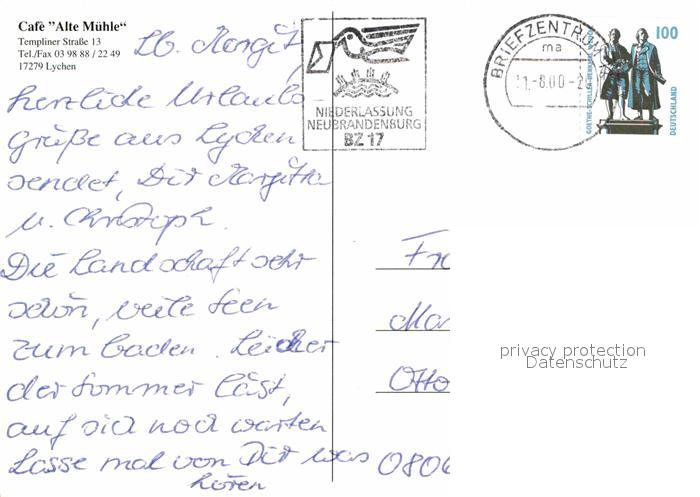 Café "Alte Mühle"
Templiner Straße 13
Tel./Fax 03 98 88 / 22 49
17279 Lychen
Lb. Margit,
herzliche Urlaubs
grüße aus Lychen
sendet, Dir Margitta
u. Christoph.
Die Landschaft sehr
schön, viele Seen
zum baden. Leider
der Sommer läst,
auf sich noch warten
Lasse mal von Dir was
hören
NIEDERLASSUNG
NEUBRANDENBURG
BZ 17
BRIEFZENTRUM
ma
-8.00-2
100
DEUTSCHLAND
Fr
Mar
Otto
0806
privacy protection
Datenschutz